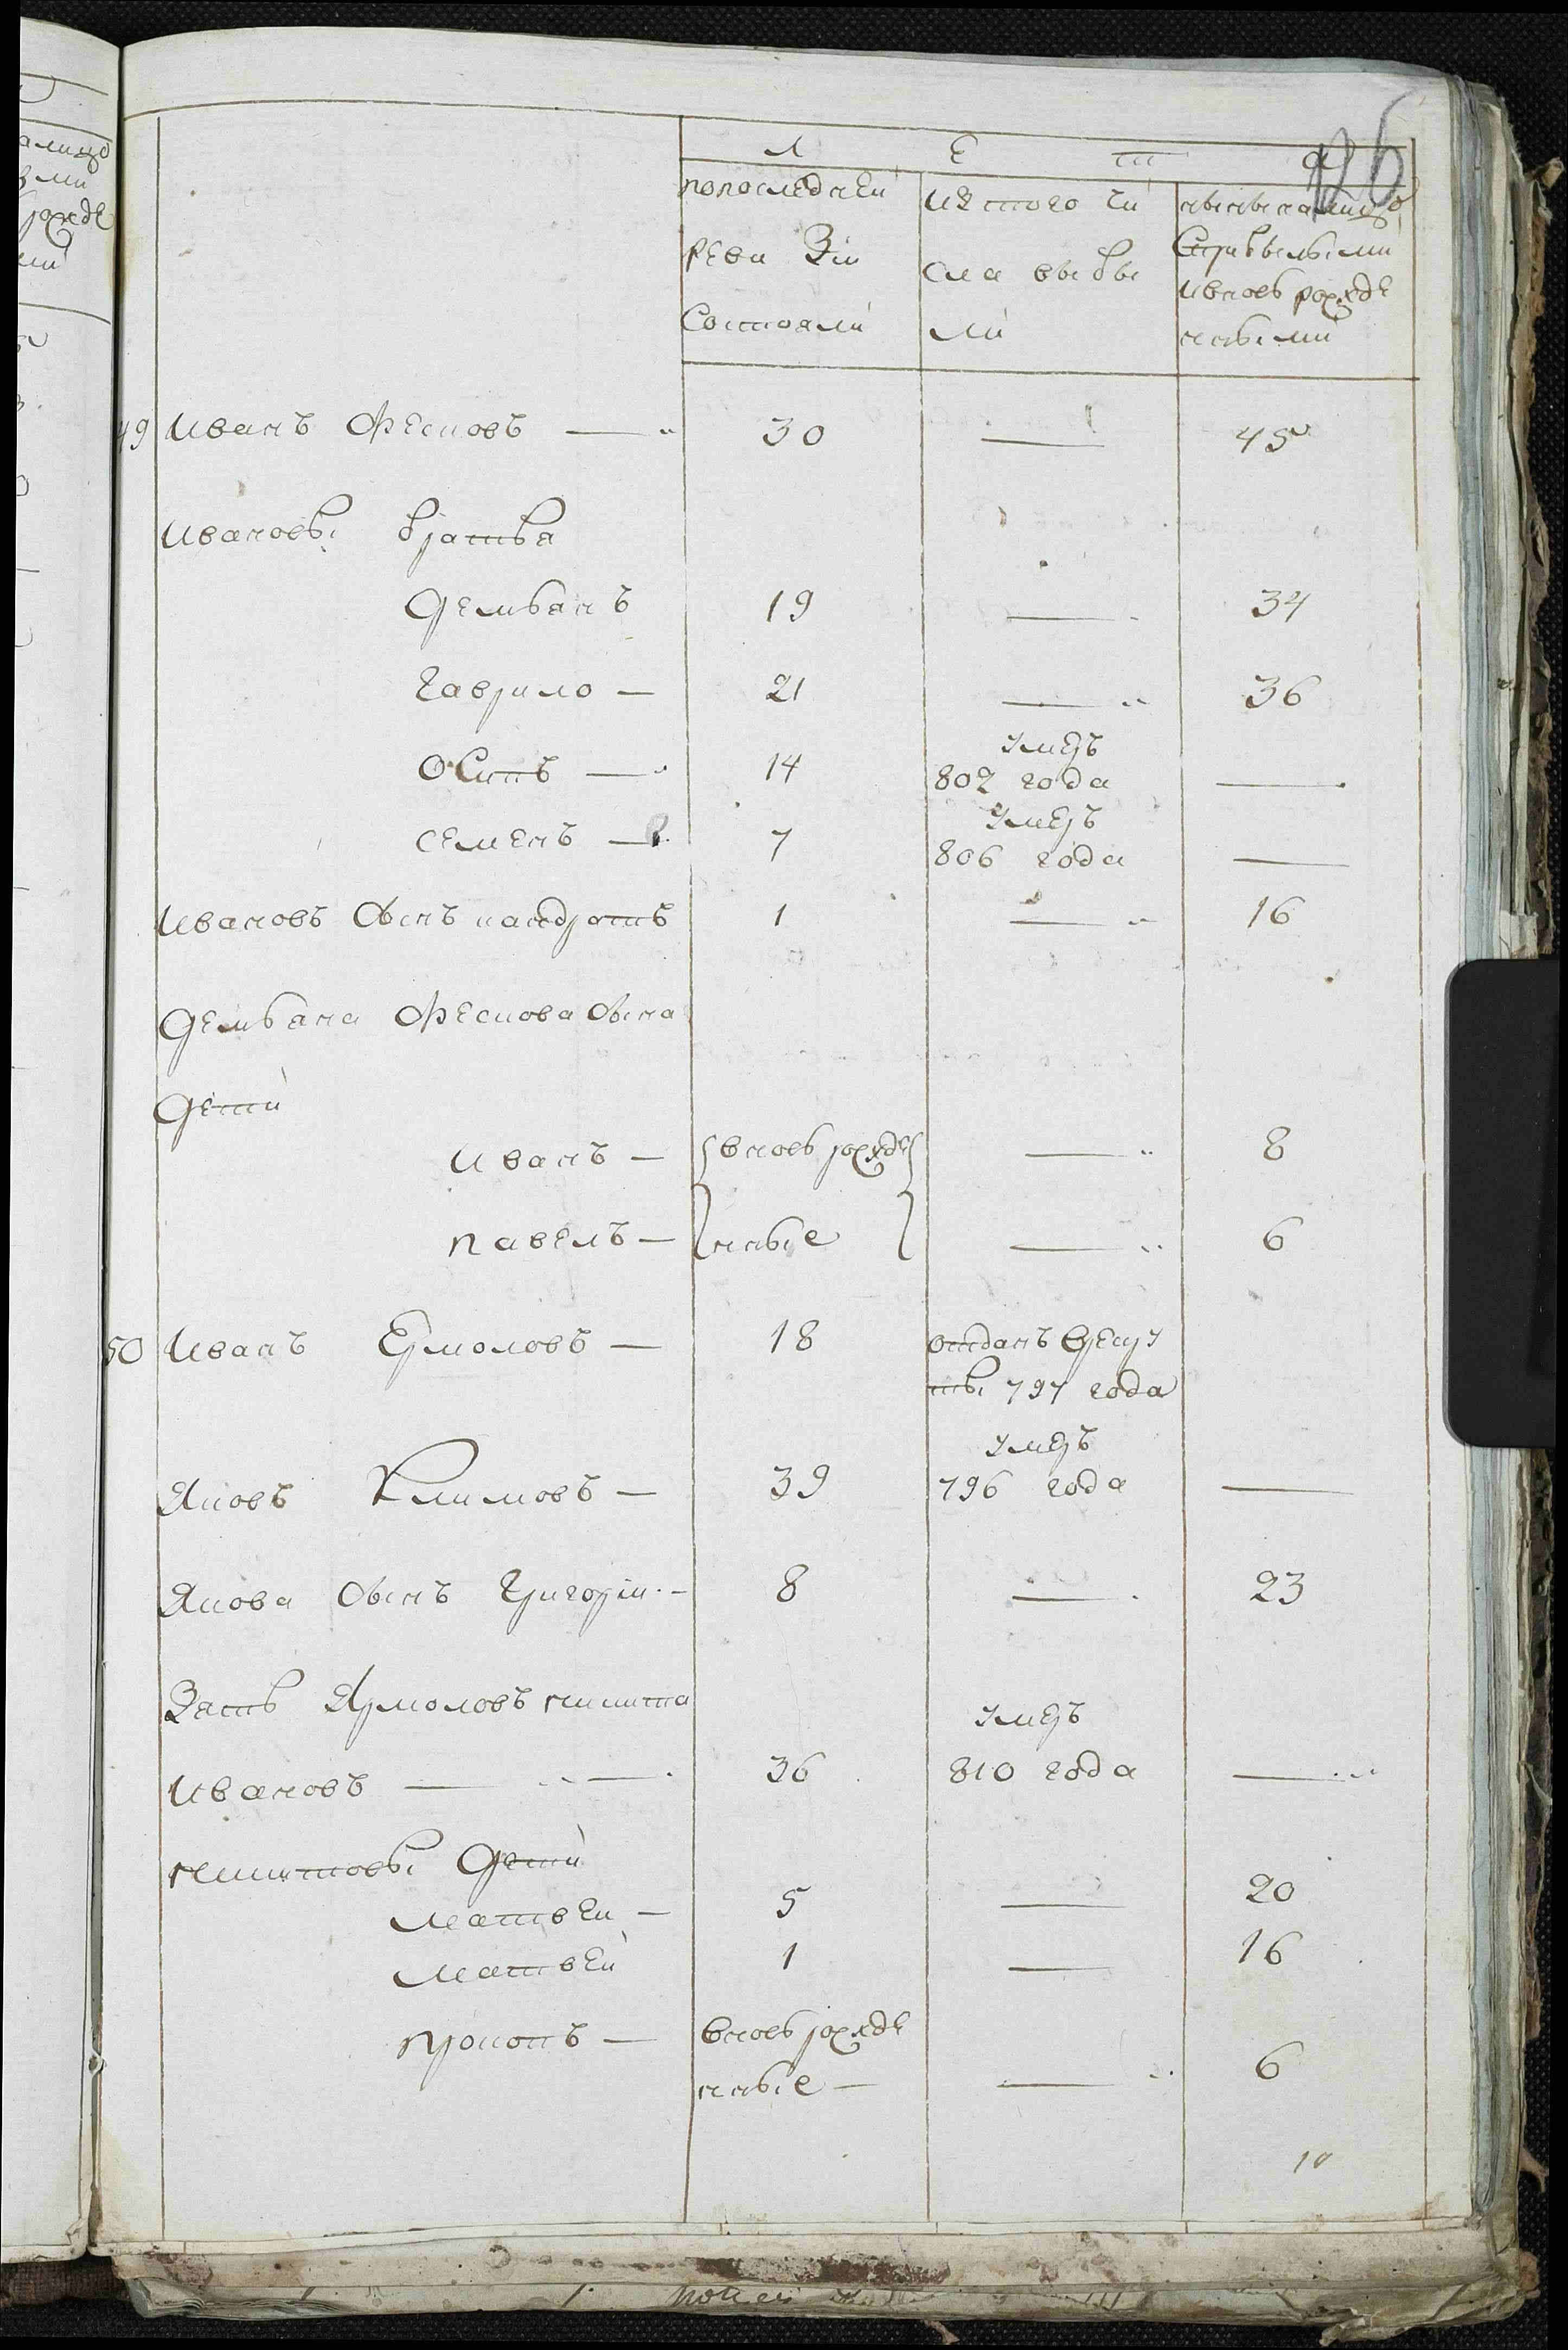 Л Е т а
106
попоследнеи ревизіи состояли
изтого числа выбыли
нынѣналицо
Сприбылыми
ивновь рожденными
49 Иванъ Фесковъ — 30 — 45
Ивановы братья
Демьянъ 19 — 34
Гаврило — 21 — 36
умеръ
Осипъ — 14 802 года —
умеръ
семенъ — 7 806 года —
Ивановъ Сынъ кандратъ 1 — 16
Демьяна Фескова Сына
Дети
Иванъ — вновь рожде — 8
павелъ — нные — 6
50 Иванъ Ермоловъ — 18 отданъ врекру
ты 797 года
умеръ
Яковъ Климовъ — 39 796 года —
Якова Сынъ Григорій — 8 — 23
Зять Ярмоловъ никита
умеръ
Ивановъ — 36 810 года —
никитовы Дети
Матвеи — 5 — 20
Матвей 1 — 16
прокопъ — вновь рожде
нные — — 6
10